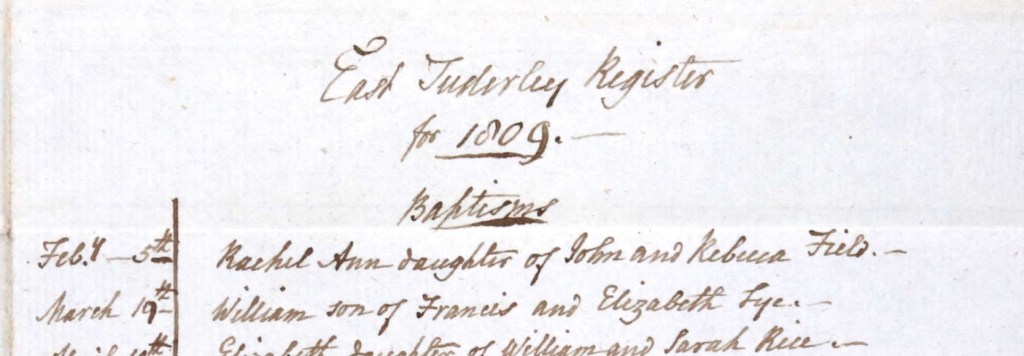 East Tuderley Register
for 1809.—
Baptisms
Feb.y — 5th Rachel Ann daughter of John and Rebecca Field. —
March 19th William son of Francis and Elizabeth Lye. —
Elizabeth daughter of William and Sarah Rice. —